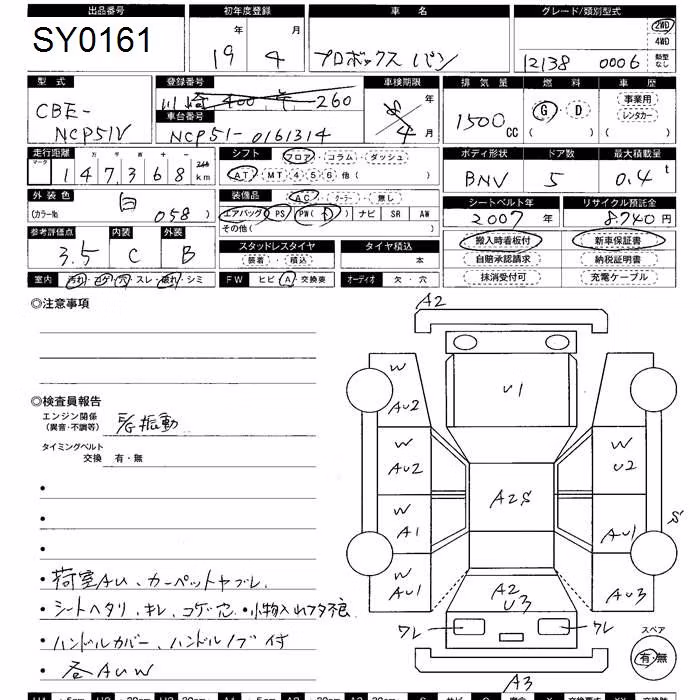 出品番号 初年度登録 車 名 グレード/類別型式
SY0161 19 年 4 月 プロボックス バン 12138 0006 2WD 4WD 類型なし
型 式 登録番号 車検期限 排 気 量 燃 料 車 歴
CBE-NCP51V 川崎 400 260 年 4 月 1500 CC G・D ( ) 事業用 レンタカー ( )
車台番号
NCP51-0161314
走行距離 シフト フロア・コラム・ダッシュ ボディ形状 ドア数 最大積載量
マーク 万 千 百 十 一
147,368 km AT・MT 4 5 6 他 ( ) BNV 5 0.4 t
外 装 色 装備品 AC・クーラー・無し シートベルト年 リサイクル預託金
(カラーNo 白 058 ) エアバッグ PS PW ( ) ナビ SR AW 2007 年 8740 円
その他 ( )
参考評価点 内装 外装 スタッドレスタイヤ タイヤ積込 搬入時看板付 新車保証書
3.5 C B 装着・積込 本 自賠承認請求 納税証明書
室内 汚れ・コゲ・穴・スレ・破れ・シミ FW ヒビ A 交換要 オーディオ 欠・穴 抹消受付可 充電ケーブル
◎注意事項
◎検査員報告
エンジン関係
(異音・不調等) E/G振動
タイミングベルト
交換 有・無
・荷室AU、カーペットヤブレ
・シートヘタリ、キレ、コゲ穴・小物入れフタ不良
・ハンドルカバー、ハンドルノブ付
・各AUW
A2
W AU2 U1
W AU2 W U2
W A1 A2S AU1 S
W AU1 A2 U3 AU3
ワレ ワレ
A3
スペア
有・無